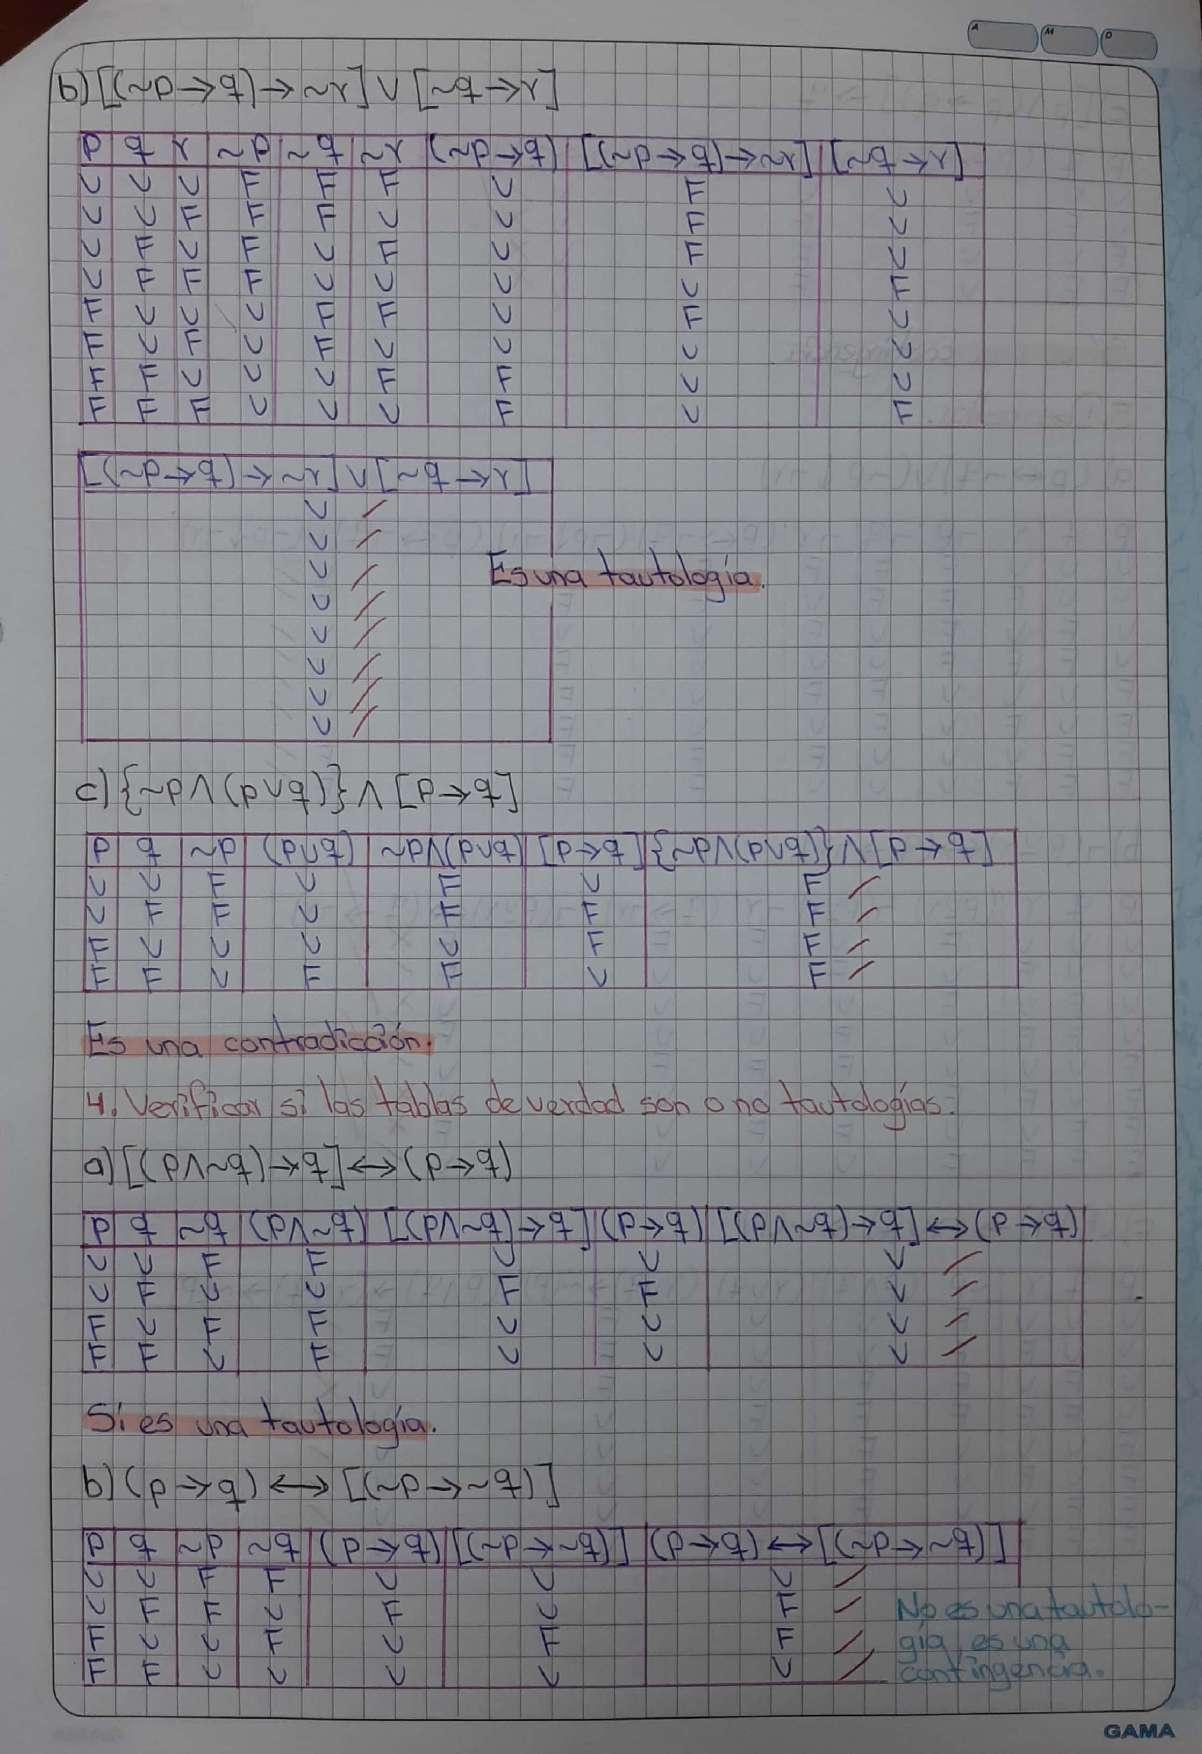 A M D
b) [(~p→q)→~r] ∨ [~q→r]
p q r ~p ~q ~r (~p→q) [(~p→q)→~r] [~q→r]
V V V F F F V F V
V V F F F V V F V
V F V F V F V F V
V F F F V V V V F
F V V V F F V F V
F V F V F V V V V
F F V V V F F V V
F F F V V V F V F
[(~p→q)→~r] ∨ [~q→r]
V
V
V
V
V
V
V
V
Es una tautología.
c) {~p∧(p∨q)} ∧ [p→q]
p q ~p (p∨q) ~p∧(p∨q) [p→q] {~p∧(p∨q)} ∧ [p→q]
V V F V F V F
V F F V F F F
F V V V V F F
F F V F F V F
Es una contradicción.
4. Verificar si las tablas de verdad son o no tautologías.
a) [(p∧~q)→q]↔(p→q)
p q ~q (p∧~q) [(p∧~q)→q] (p→q) [(p∧~q)→q]↔(p→q)
V V F F V V V
V F V V F F V
F V F F V V V
F F V F V V V
Sí es una tautología.
b) (p→q)↔[(~p→~q)]
p q ~p ~q (p→q) [(~p→~q)] (p→q)↔[(~p→~q)]
V V F F V V V
V F F V F V F
F V V F V F F
F F V V V V V
No es una tautolo-
gía, es una
contingencia.
GAMA